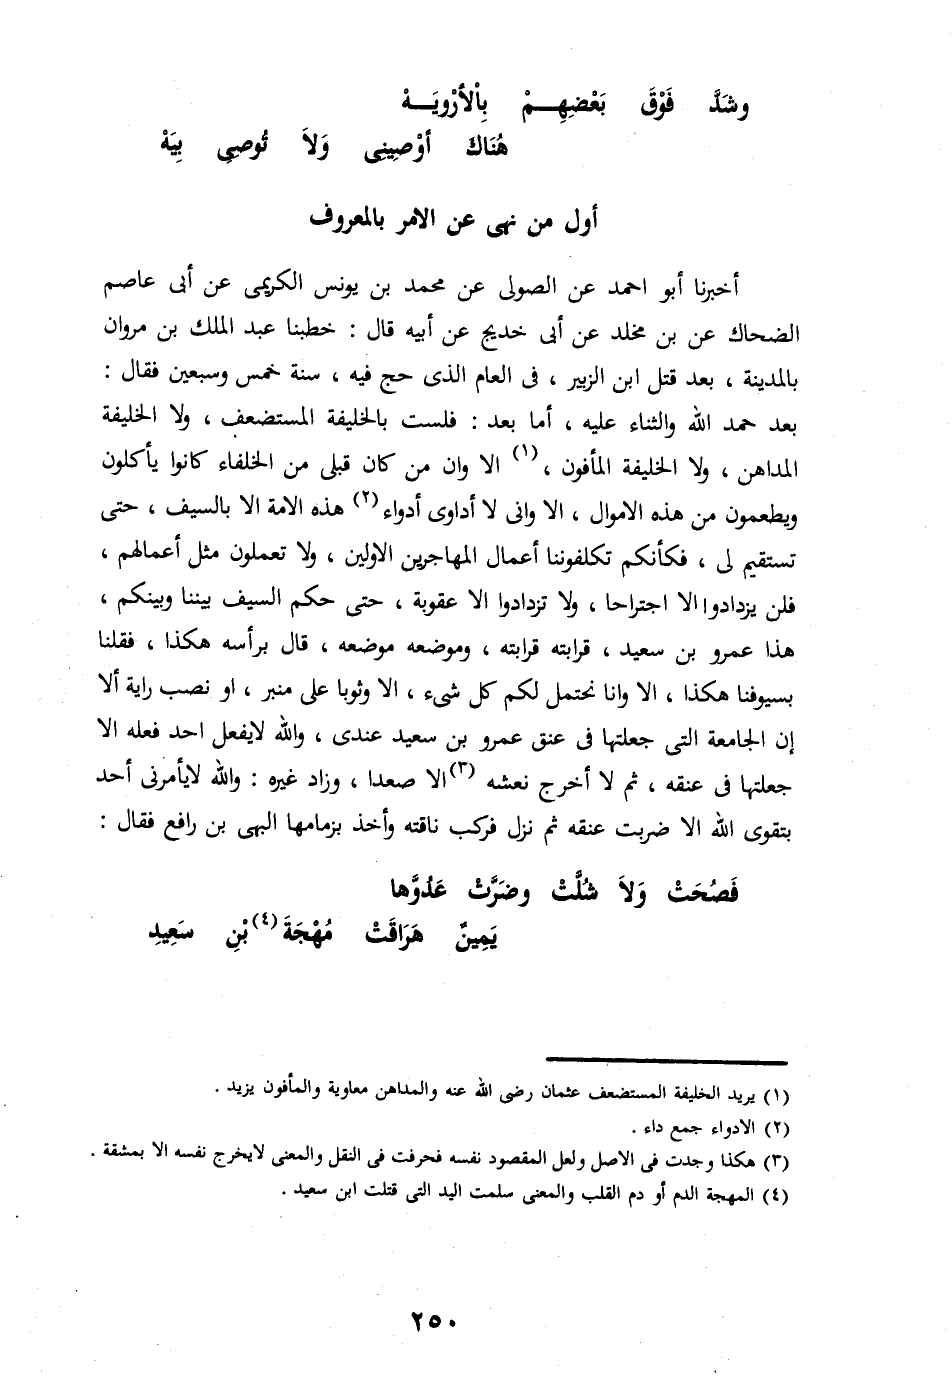 وشَدَّ فَوْقَ بَعْضِهِمْ بِاْلأَرْوِيَهْ
هُنَاكَ أَوْصِينِى وَلاَ تُوصِى بِيَهْ
أول من نهى عن الامر بالمعروف
أخبرنا أبو احمد عن الصولى عن محمد بن يونس الكريمى عن أبى عاصم
الضحاك عن بن مخلد عن أبى خديج عن أبيه قال : خطبنا عبد الملك بن مروان
بالمدينة ، بعد قتل ابن الزبير ، فى العام الذى حج فيه ، سنة خمس وسبعين فقال :
بعد حمد الله والثناء عليه ، أما بعد : فلست بالخليفة المستضعف ، ولا الخليفة
المداهن ، ولا الخليفة المأفون ،(١) الا وان من كان قبلى من الخلفاء كانوا يأكلون
ويطعمون من هذه الاموال ، الا وانى لا أداوى أدواء(٢) هذه الامة الا بالسيف ، حتى
تستقيم لى ، فكأنكم تكلفوننا أعمال المهاجرين الاولين ، ولا تعملون مثل أعمالهم ،
فلن يزدادوا الا اجتراحا ، ولا تزدادوا الا عقوبة ، حتى حكم السيف بيننا وبينكم ،
هذا عمرو بن سعيد ، قرابته قرابته ، وموضعه موضعه ، قال برأسه هكذا ، فقلنا
بسيوفنا هكذا ، الا وانا نحتمل لكم كل شىء ، الا وثوبا على منبر ، او نصب راية ألا
إن الجامعة التى جعلتها فى عنق عمرو بن سعيد عندى ، والله لايفعل احد فعله الا
جعلتها فى عنقه ، ثم لا أخرج نعشه (٣)الا صعدا ، وزاد غيره : والله لايأمرنى أحد
بتقوى الله الا ضربت عنقه ثم نزل فركب ناقته وأخذ بزمامها البهى بن رافع فقال :
فَصُحَتْ وَلاَ شُلَّتْ وضَرَّتْ عَدُوَّها
يَمِينٌ هَرَاقَتْ مُهْجَةَ(٤)بْنِ سَعِيدِ
(١) يريد الخليفة المستضعف عثمان رضى الله عنه والمداهن معاوية والمأفون يزيد .
(٢) الادواء جمع داء .
(٣) هكذا وجدت فى الاصل ولعل المقصود نفسه فحرفت فى النقل والمعنى لايخرج نفسه الا بمشقة .
(٤) المهجة الدم أو دم القلب والمعنى سلمت اليد التى قتلت ابن سعيد .
٢٥٠